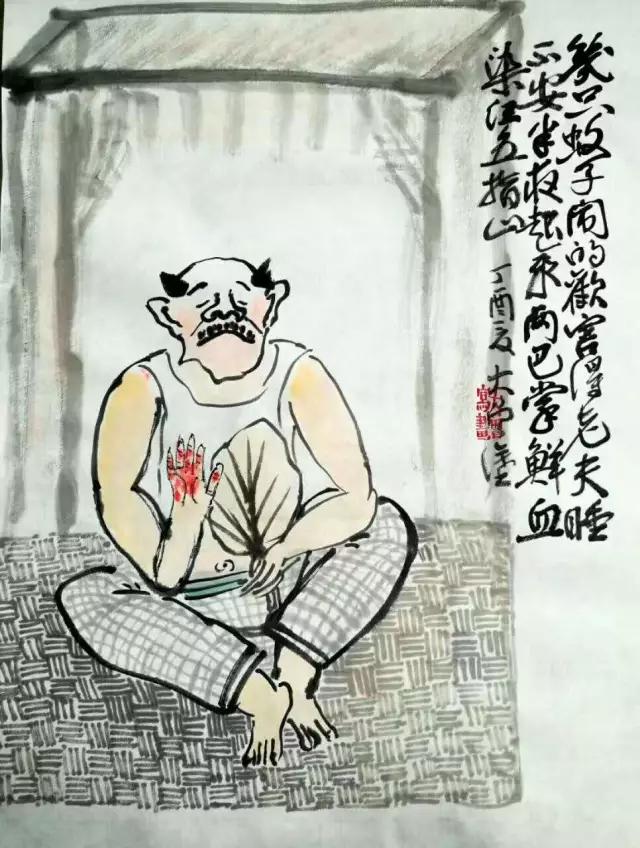 幾只蚊子闹的歡害得老夫睡
不安半夜起来两巴掌鲜血
染红五指山 丁酉夏